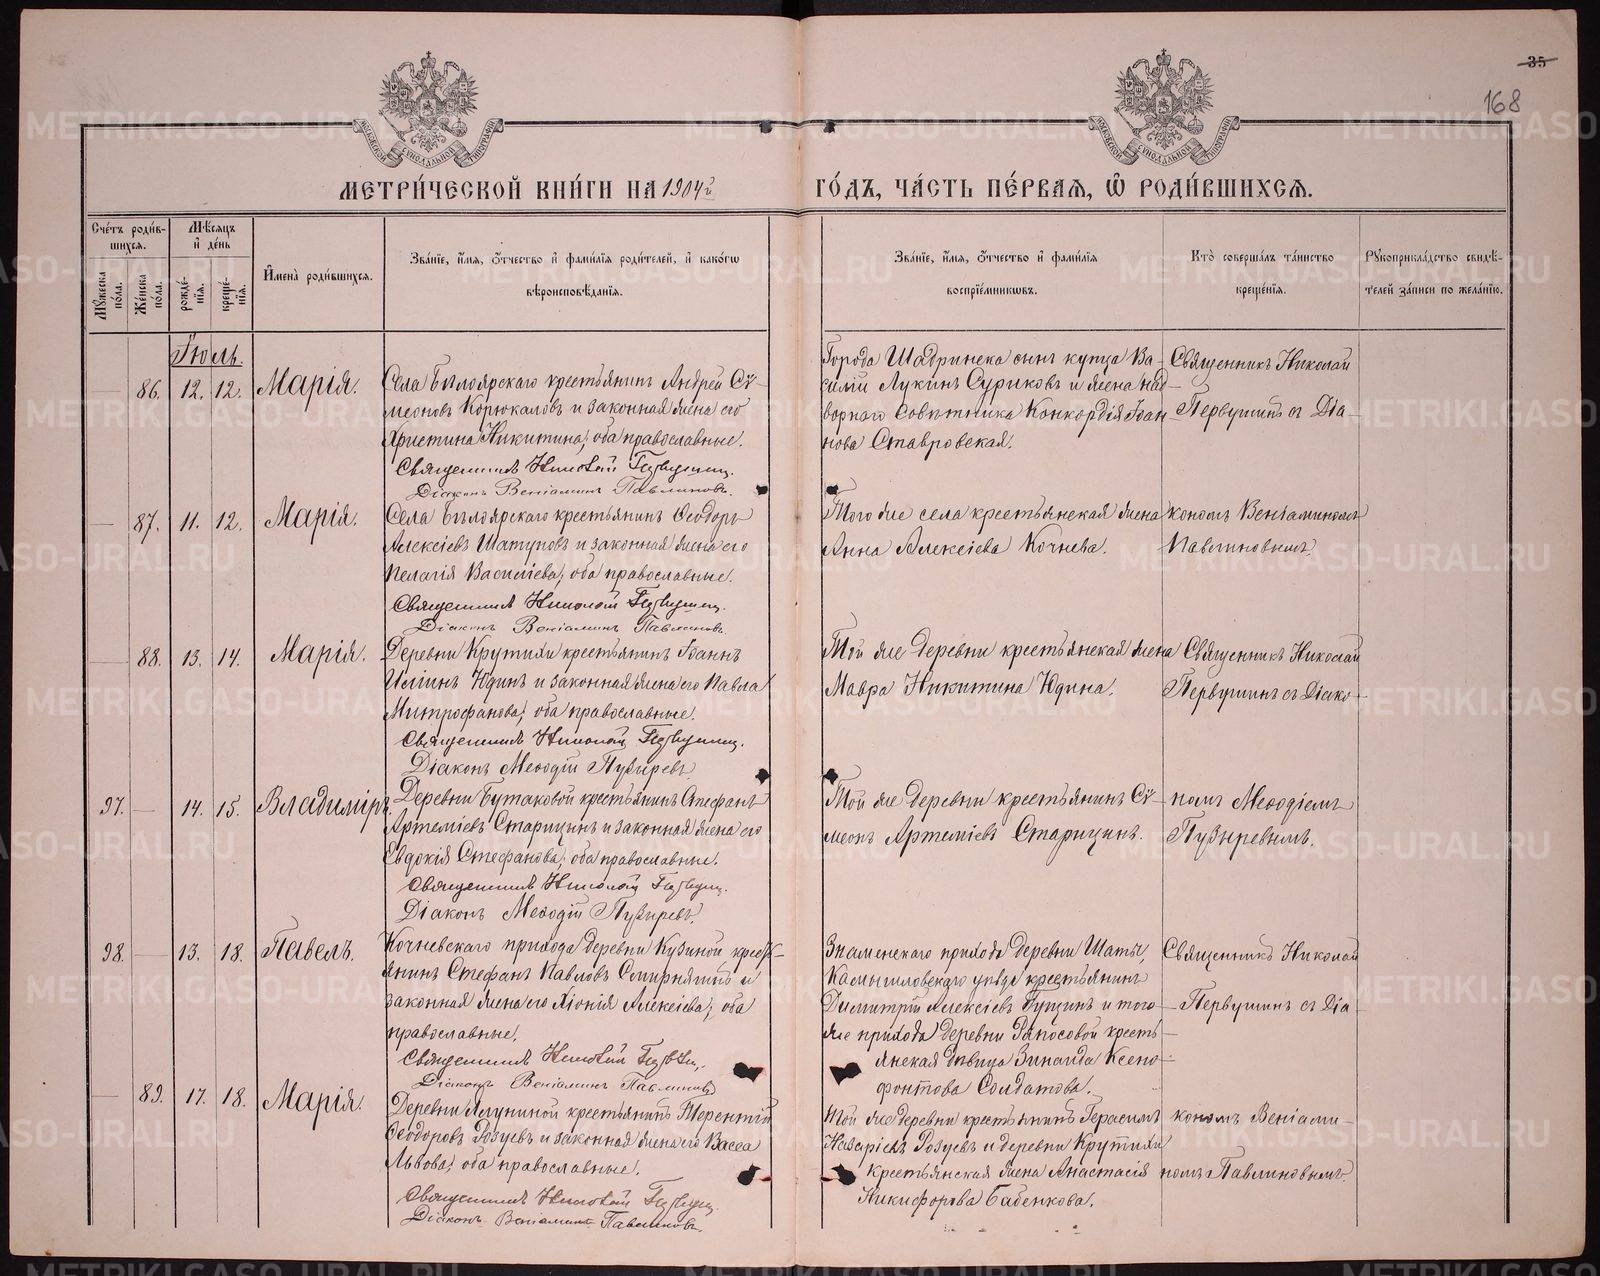 35
168
МЕТРИ́ЧЕСКОЙ КНИ́ГИ НА 1904й ГО́ДЪ, ЧА́СТЬ ПЕ́РВАЯ, Ѡ РОДИ́ВШИХСЯ.
Сче́тъ роди́в-
шихся.
Мꙋжеска по́ла.
Же́нска по́ла.
Мѣ́сяцъ
и҆ де́нь
рожде́-
нїя.
креще́-
нїя.
И҆мена̀ роди́вшихся.
Зва́нїе, и҆́мя, ѻ҆́тчество и҆ фами́лїя роди́телей, и҆ како́гѡ
вѣроисповѣ́данїя.
Зва́нїе, и҆́мя, ѻ҆́тчество и҆ фами́лїя
воспрїе́мникѡвъ.
Кто̀ соверша́лъ та́инство
креще́нїя.
Рꙋкоприкла́дство свидѣ́-
телей за́писи по жела́нїю.
Іюль.
86. 12. 12. Марія.
Села Бѣлоярскаго крестьянинъ Андрей Сѵ-
меоновъ Корюкаловъ и законная жена его
Христина Никитина, оба православные.
Священникъ Николай Первушинъ.
Діаконъ Веніаминъ Павлиновъ.
Города Шадринска сынъ купца Ва-
силій Лукинъ Суриковъ и жена над-
ворнаго совѣтника Конкордія Іоан-
нова Ставровская.
Священникъ Николай
Первушинъ съ Діа-
87. 11. 12. Марія.
Села Бѣлоярскаго крестьянинъ Ѳеодоръ
Алексіевъ Шатуновъ и законная жена его
Пелагія Василіева, оба православные.
Священникъ Николай Первушинъ.
Діаконъ Веніаминъ Павлиновъ.
Того же села крестьянская жена
Анна Алексіева Кочнева.
кономъ Веніаминомъ
Павлиновымъ.
88. 13. 14. Марія.
Деревни Крутихи крестьянинъ Іоаннъ
Иліинъ Юдинъ и законная жена его Павла
Митрофанова, оба православные.
Священникъ Николай Первушинъ.
Діаконъ Меѳодій Пузыревъ.
Той же деревни крестьянская жена
Мавра Никитина Юдина.
Священникъ Николай
Первушинъ съ Діако-
97. 14. 15. Владиміръ.
Деревни Бутаковой крестьянинъ Стефанъ
Артеміевъ Старицинъ и законная жена его
Евдокія Стефанова, оба православные.
Священникъ Николай Первушинъ.
Діаконъ Меѳодій Пузыревъ.
Той же деревни крестьянинъ Сѵ-
меонъ Артеміевъ Старицинъ.
номъ Меѳодіемъ
Пузыревымъ.
98. 13. 18. Павелъ.
Кочневскаго прихода деревни Кузиной кресть-
янинъ Стефанъ Павловъ Смирнягинъ и
законная жена его Хіонія Алексіева, оба
православные.
Священникъ Николай
Діаконъ Веніаминъ Павлиновъ
Знаменскаго прихода деревни Шаты,
Камышловскаго уѣзда крестьянинъ
Димитрій Алексіевъ и того-
же прихода деревни кресть-
янская дѣвица Зинаида Ксено-
фонтова Солдатова.
Священникъ Николай
Первушинъ съ Діа-
89. 17. 18. Марія.
Деревни крестьянинъ Терентій
Ѳеодоровъ Розуевъ и законная жена его Васса
Львова, оба православные.
Священникъ Николай
Діаконъ Веніаминъ Павлиновъ.
Той же деревни крестьянинъ Герасимъ
Назаріевъ Розуевъ и деревни Крутихи
крестьянская жена Анастасія
Никифорова Бабенкова.
кономъ Веніами-
номъ Павлиновымъ.
METRIKI.GASO-URAL.RU